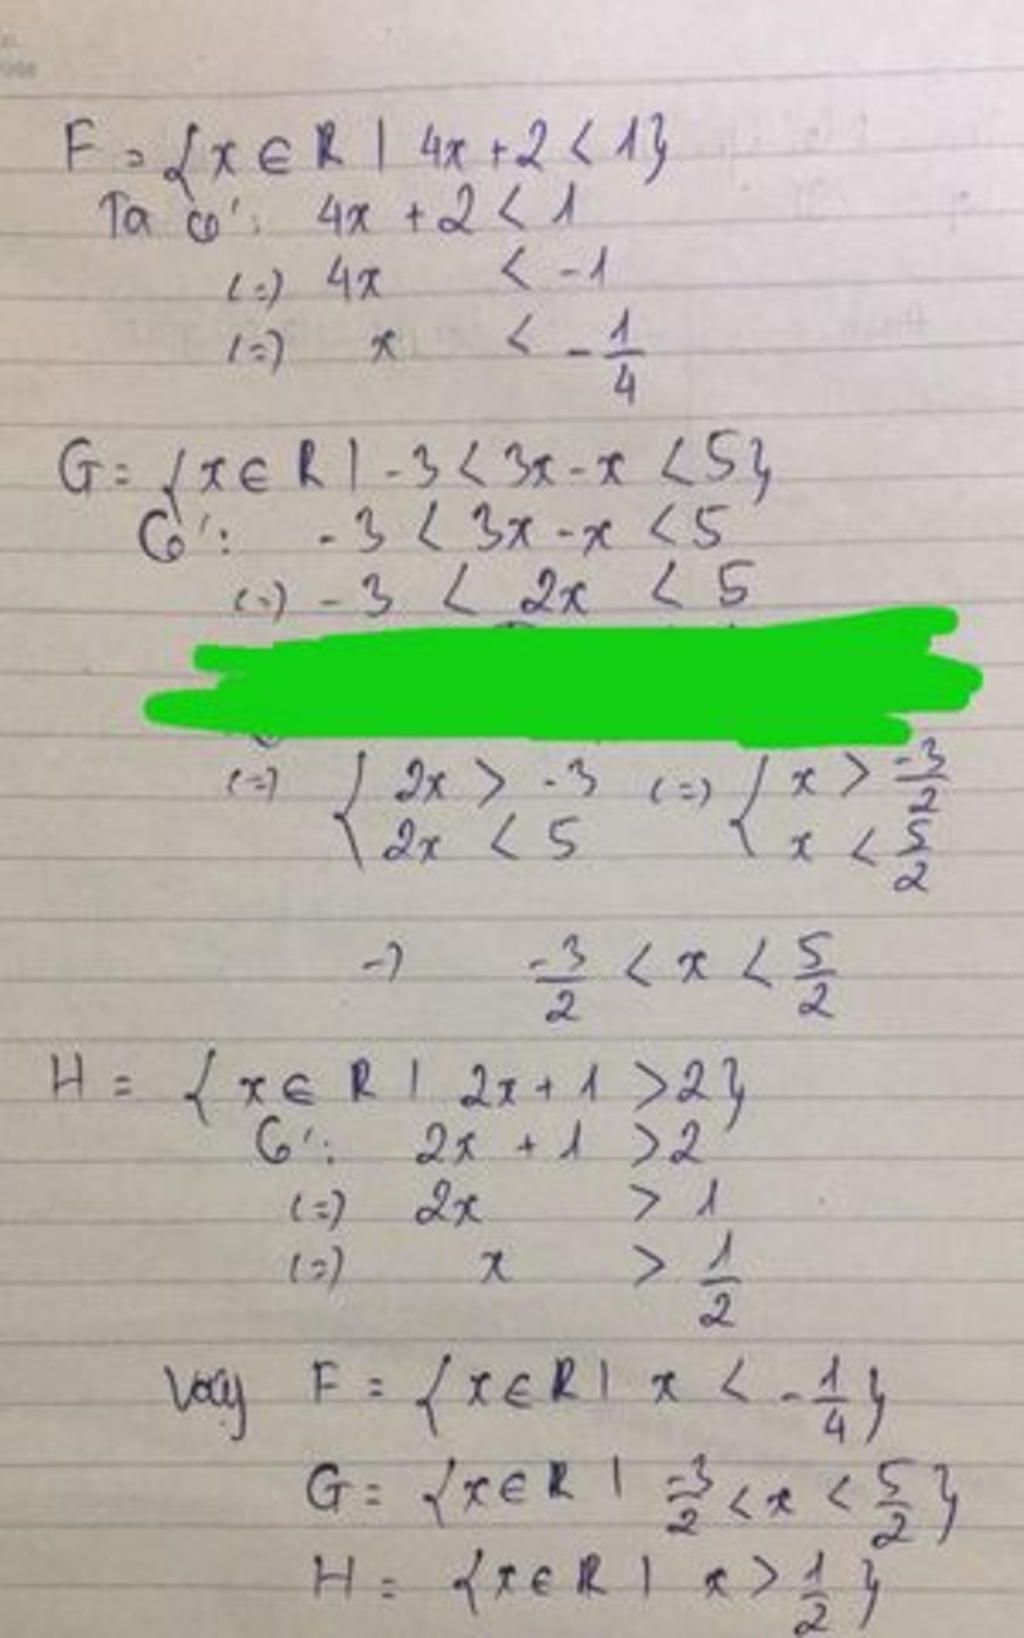 F = {x ∈ R | 4x + 2 < 1}
Ta có: 4x + 2 < 1
(=) 4x < -1
(=) x < -1/4
G = {x ∈ R | -3 < 3x - x < 5}
Có: -3 < 3x - x < 5
(=) -3 < 2x < 5
(=) { 2x > -3 (=) { x > -3/2
2x < 5 x < 5/2
-) -3/2 < x < 5/2
H = {x ∈ R | 2x + 1 > 2}
Có: 2x + 1 > 2
(=) 2x > 1
(=) x > 1/2
Vậy F = {x ∈ R | x < -1/4}
G = {x ∈ R | -3/2 < x < 5/2}
H = {x ∈ R | x > 1/2}